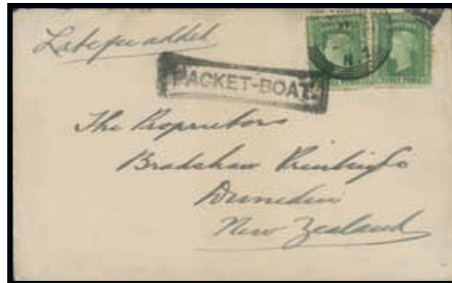 Late fee added
PACKET-BOAT.
The Proprietors
Bradshaw Printing Co
Dunedin
New Zealand